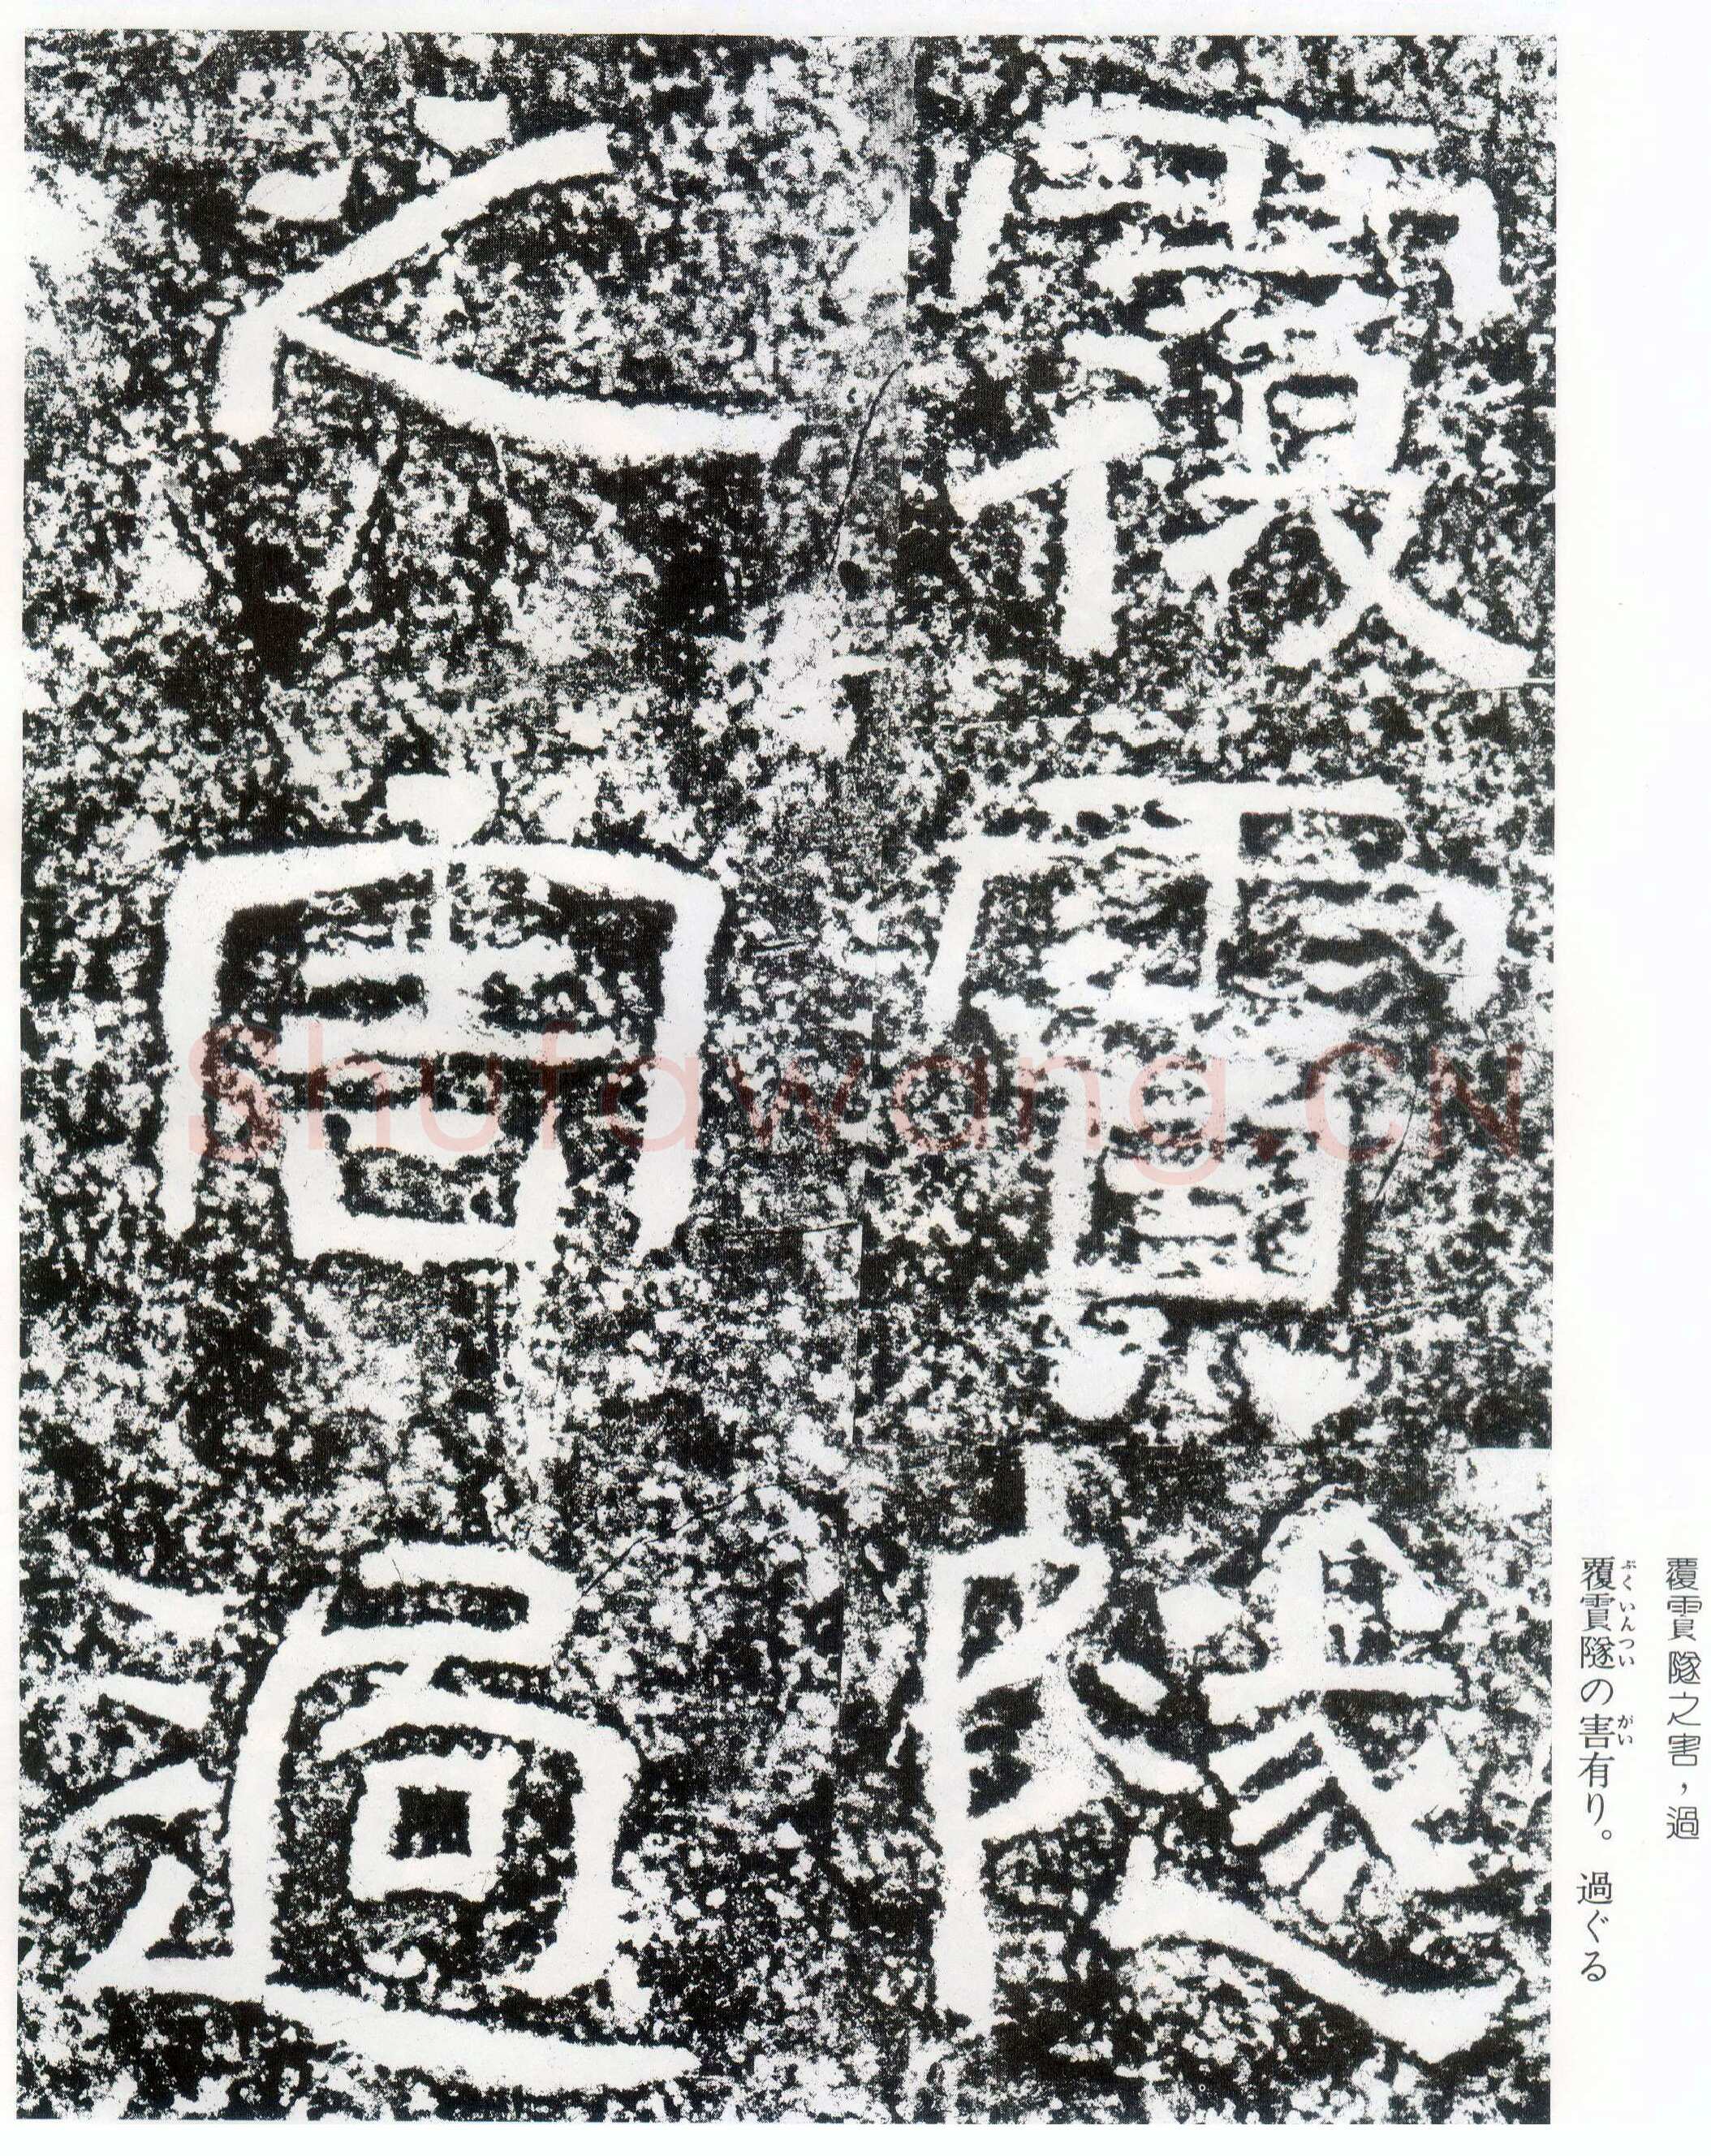 覆霣隧
之害過
覆霣隧之害，過
覆霣隧の害有り。過ぐる
ぶくいんつい
がい
Shufawang.CN